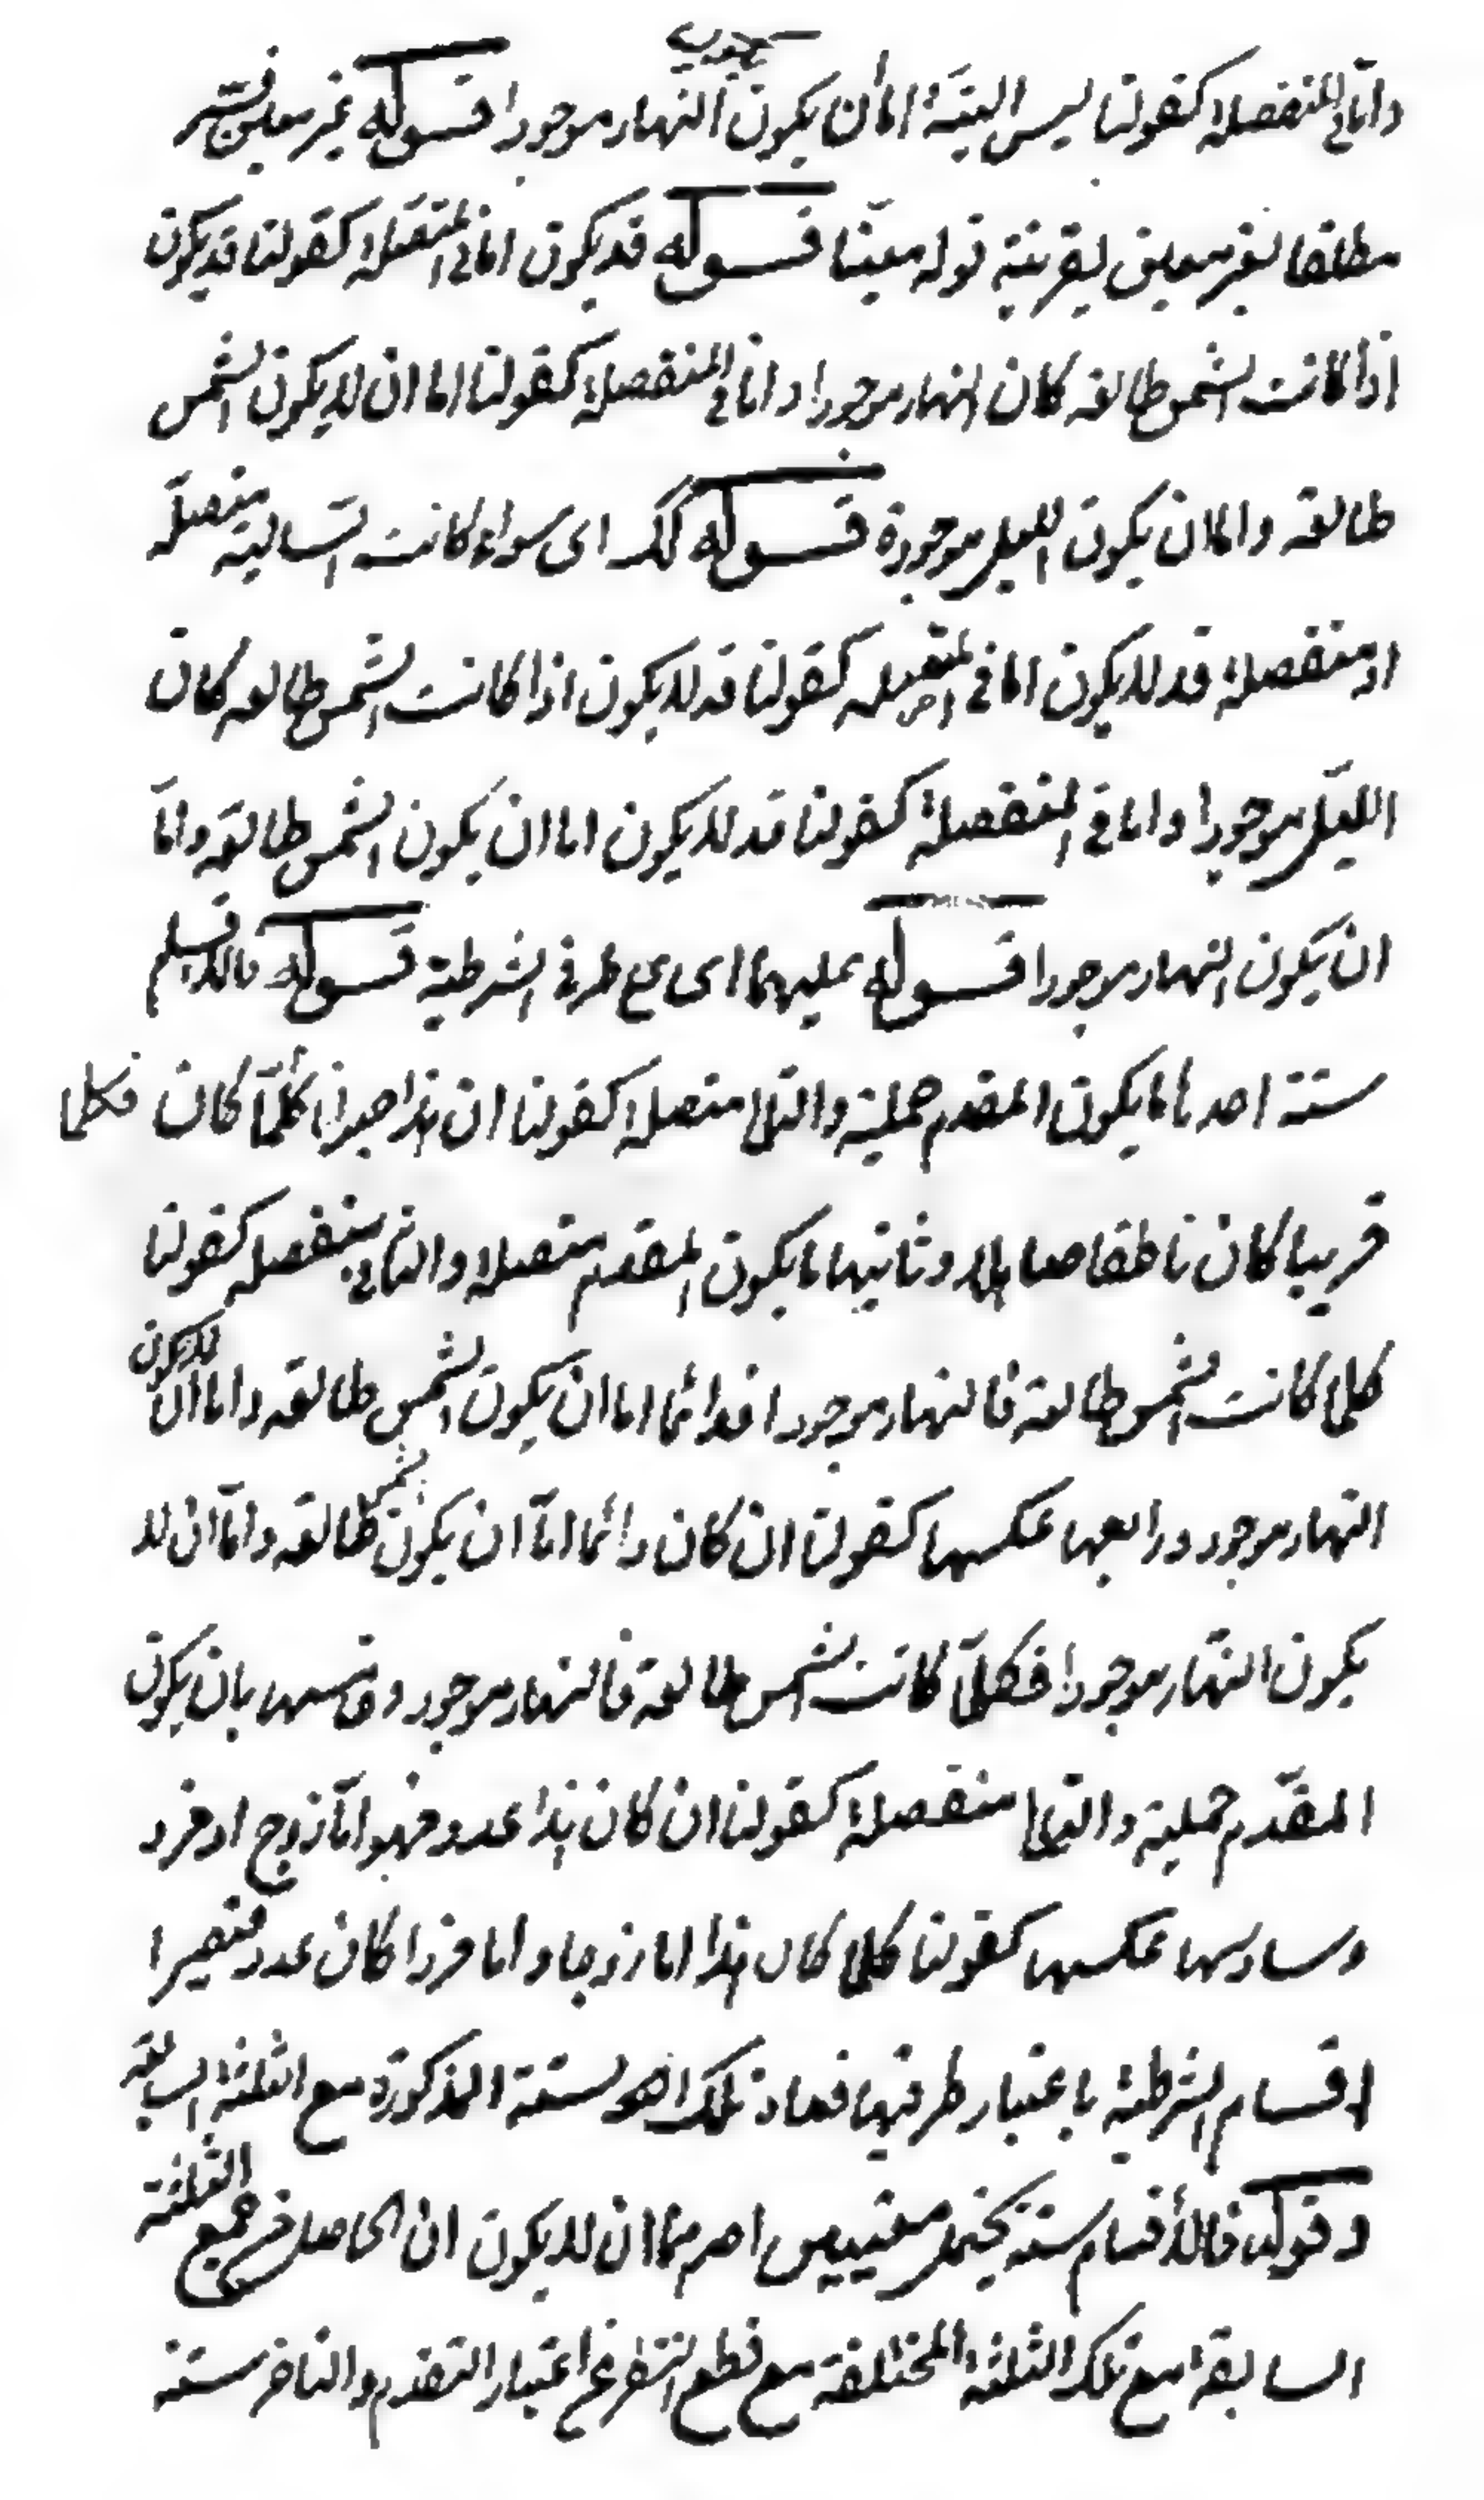 واما فى المنفصلة كقولنا ليس البتة اما ان يكون النهار موجودا قوله غير معين فسر
مطلقا بغير معين بقرينة قوله معينا قوله قد يكون اما فى المتصلة كقولنا قد يكون
اذا كانت الشمس طالعة كان النهار موجودا واما فى المنفصلة كقولنا اما ان لا يكون الشمس
طالعة واما ان يكون الليل موجودة قوله كك اى سواء كانت السالبة متصلة
او منفصلة قد لا يكون اما فى المتصلة كقولنا قد لا يكون اذا كانت الشمس طالعة كان
الليل موجودا واما فى المنفصلة كقولنا قد لا يكون اما ان يكون الشمس طالعة واما
ان يكون النهار موجودا قوله عليهما اى على طرفى الشرطية قوله فالاقسام
ستة احدها ما يكون المقدم حملية والتالى متصلة كقولنا ان هذا كلما كان فكلما
كان ناطقا وثانيها ما يكون المقدم متصلة والتالى منفصلة كقولنا
كلما كانت الشمس طالعة فالنهار موجود فدائما اما ان يكون الشمس طالعة واما ان لا يكون
النهار موجود ورابعها عكسها كقولنا ان كان دائما اما ان يكون الشمس طالعة واما ان لا
يكون النهار موجودا فكلما كانت الشمس طالعة فالنهار موجود وخامسها بان يكون
المقدم حملية والتالى منفصلة كقولنا ان كان هذا عدد فهو اما زوج او فرد
وسادسها عكسها كقولنا كلما كان هذا اما زوجا واما فردا كان عدد فتصير
اقسام الشرطية باعتبار طرفيها تلك الستة المذكورة مع الثلثة السابقة
وقوله فالأقسام ستة يحتمل معنيين احدهما ان لا يكون ان الحاصل من جمع الثلثة
السابقة مع تلك الثلثة المختلفة مع قطع النظر عن اعتبار التقدم والتاخر ستة